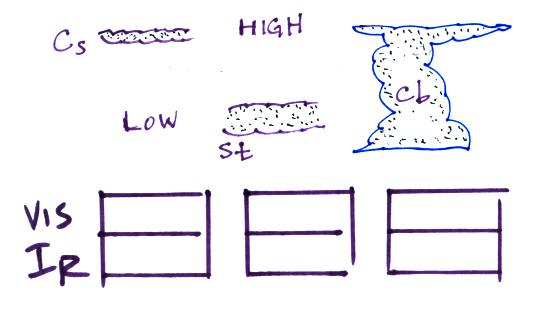 Cs HIGH
Cb
LOW
St
VIS
IR